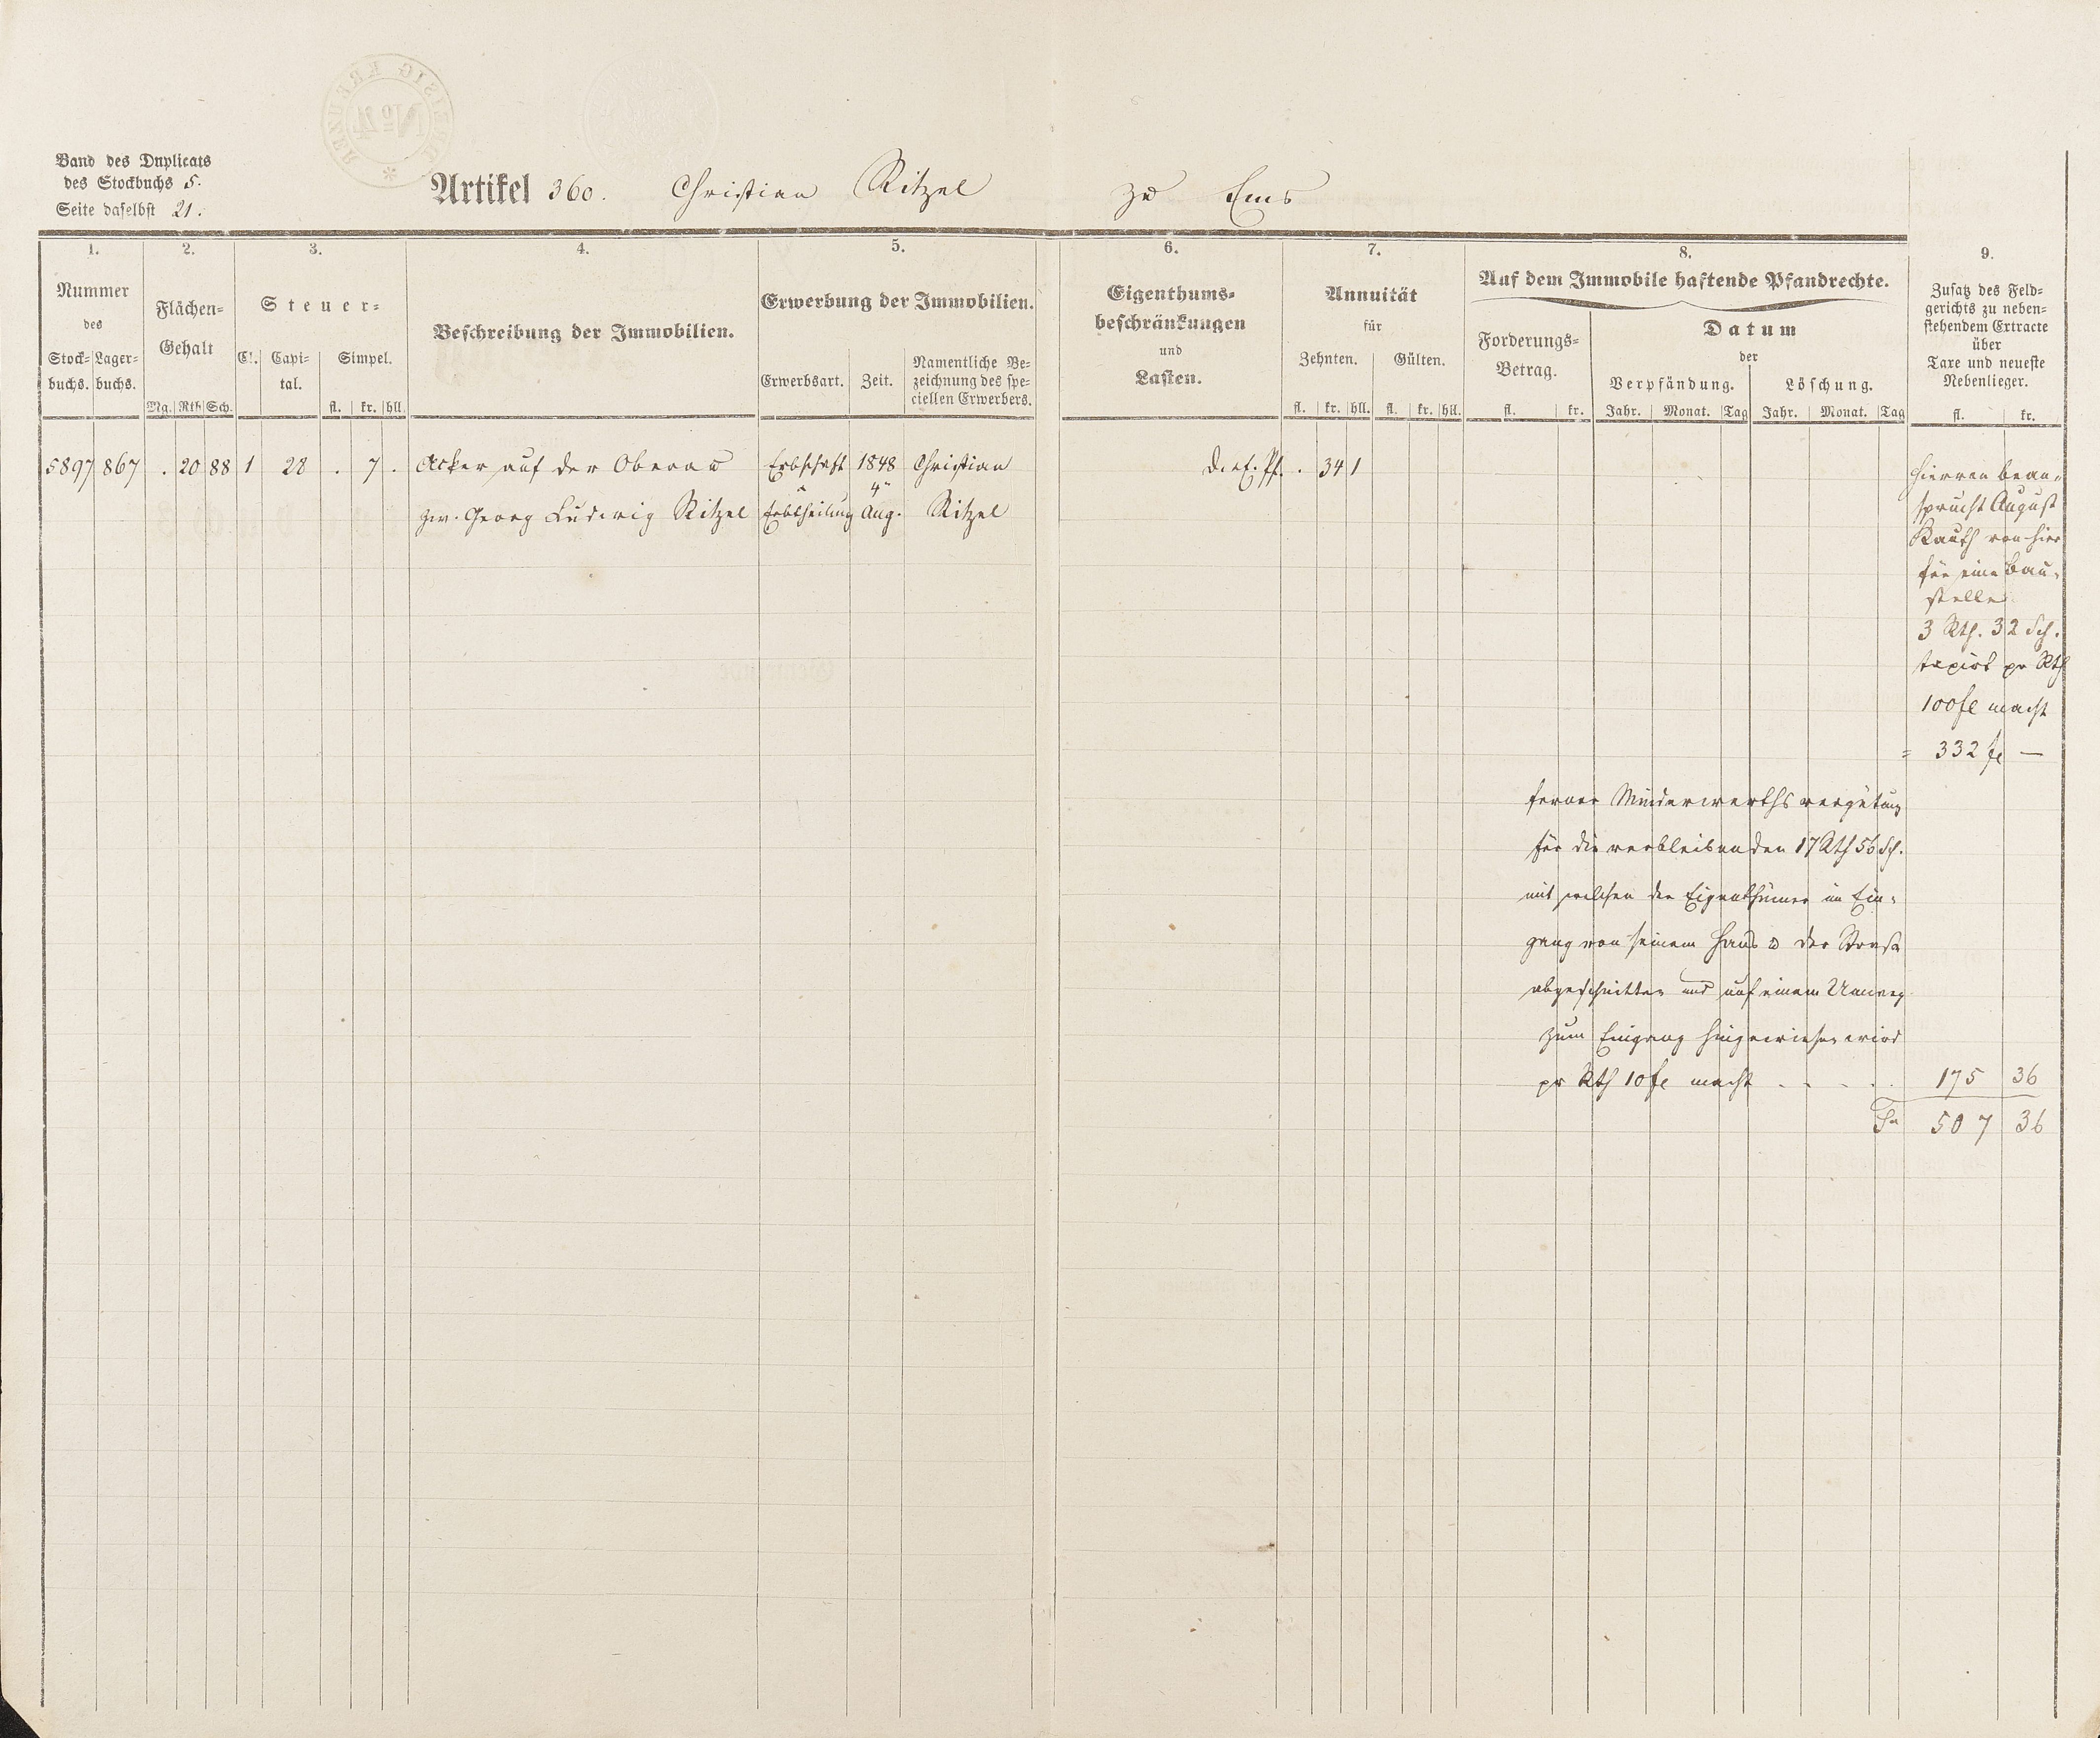 Band des Duplicats
des Stockbuchs 5.
Seite daselbst 21.
Artikel 360. Christian Ritzel zu Ems
1. 2. 3. 4. 5. 6. 7. 8. 9.
Nummer
des
Stock- Lager-
buchs. buchs.
Flächen-
Gehalt
Mg. Rth Sch.
Steuer-
Cl. Capi-
tal.
Simpel.
fl. kr. hll.
Beschreibung der Immobilien.
Erwerbung der Immobilien.
Erwerbsart. Zeit.
Namentliche Be-
zeichnung des spe-
ciellen Erwerbers.
Eigenthums-
beschränkungen
und
Lasten.
Annuität
für
Zehnten. Gülten.
fl. kr. hll. fl. kr. hll.
Auf dem Immobile haftende Pfandrechte.
Forderungs-
Betrag.
fl. kr.
Datum
der
Verpfändung. Löschung.
Jahr. Monat. Tag Jahr. Monat. Tag
Zusatz des Feld-
gerichts zu neben-
stehendem Extracte
über
Taxe und neueste
Nebenlieger.
fl. kr.
5897 867 . 20 88 1 28 . 7 . Acker auf der Oberau Erbschaft 1848 Christian . 34 1
4"
zw. Georg Ludwig Ritzel Erbtheilung Aug. Ritzel
Hiervon bean-
sprucht August
Rauth von hier
für eine Bau-
stelle
3 Rth. 32 Sch.
taxirt pr Rth
100 fl macht
= 332 fl —
ferner Minderwerthsvergütung
für die verbleibenden 17 Rth 56 Sch.
mit welchen der Eigenthümer im Ein-
gang von seinem Haus u der Straße
abgeschnitten und auf einem Umweg
zum Eingang hingewiesen wird
pr Rth 10 fl macht . . . . . 175 36
Sa 507 36